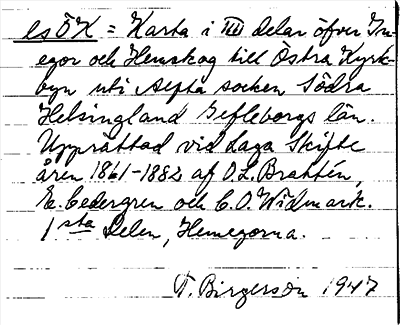 ls ÖK = Karta i III delar öfver In-
egor och Hemskog till Östra Kyrk-
byn uti Segsta socken Södra
Helsingland Gefleborgs län.
Upprättad vid Laga Skifte
åren 1861-1882 af O.L. Brattén,
E. Cedergren och C.O. Widmark.
1sta Delen, Hemegorna.
T. Birgerson 1947